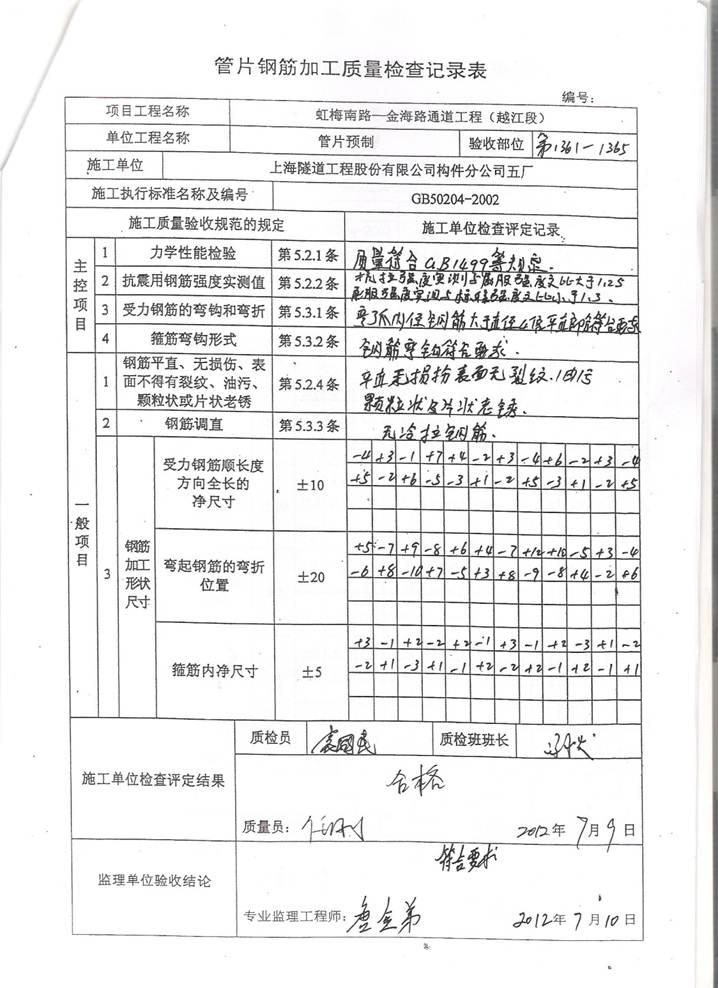 管片钢筋加工质量检查记录表
编号：
项目工程名称 虹梅南路—金海路通道工程（越江段）
单位工程名称 管片预制 验收部位 第1361-1365
施工单位 上海隧道工程股份有限公司构件分公司五厂
施工执行标准名称及编号 GB50204-2002
施工质量验收规范的规定 施工单位检查评定记录
主控项目
1 力学性能检验 第5.2.1条 质量符合GB1499等规定.
2 抗震用钢筋强度实测值 第5.2.2条 抗拉强度实测与屈服强度之比大于1.25
屈服强度实测与标准强度之比小于1.3.
3 受力钢筋的弯钩和弯折 第5.3.1条
4 箍筋弯钩形式 第5.3.2条 钢筋弯钩符合要求.
一般项目
1 钢筋平直、无损伤、表面不得有裂纹、油污、颗粒状或片状老锈 第5.2.4条 平直无损伤表面无裂纹.油污
颗粒状及片状老锈.
2 钢筋调直 第5.3.3条 无冷拉钢筋.
3 钢筋加工形状尺寸
受力钢筋顺长度方向全长的净尺寸 ±10
-4 +3 -1 +7 +4 -2 +3 -4 +6 -2 +3 -4
+5 -2 +6 -5 -3 +1 -2 +5 -3 +1 -2 +5
弯起钢筋的弯折位置 ±20
+5 -7 +9 -8 +6 +4 -7 +12 +10 -5 +3 -4
-6 +8 -10 +7 -5 +3 +8 -9 -8 +4 -2 +6
箍筋内净尺寸 ±5
+3 -1 +2 -2 +2 -1 +3 -1 +2 -3 +1 -2
-2 +1 -3 +1 -1 +2 -2 +2 -1 +2 -1 +1
施工单位检查评定结果
质检员 质检班班长
合格
质量员： 2012年7月9日
监理单位验收结论
符合要求
专业监理工程师： 2012年7月10日